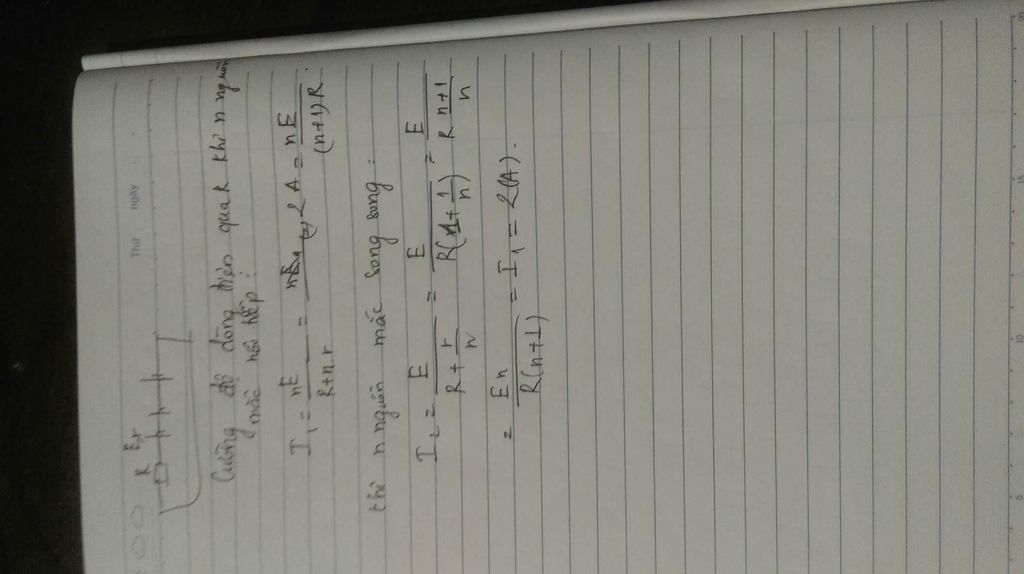 Thứ ngày
R E,r
Cường độ dòng điện qua R khi n nguồn
mắc nối tiếp:
I₁ = nE / (R+n.r) = (=) 2A = nE / (n+1)R.
thì n nguồn mắc song song:
I₂ = E / (R + r/n) = E / R(1+1/n) = E / (R (n+1)/n)
= En / R(n+1) = I₁ = 2(A).
5
10
15
20